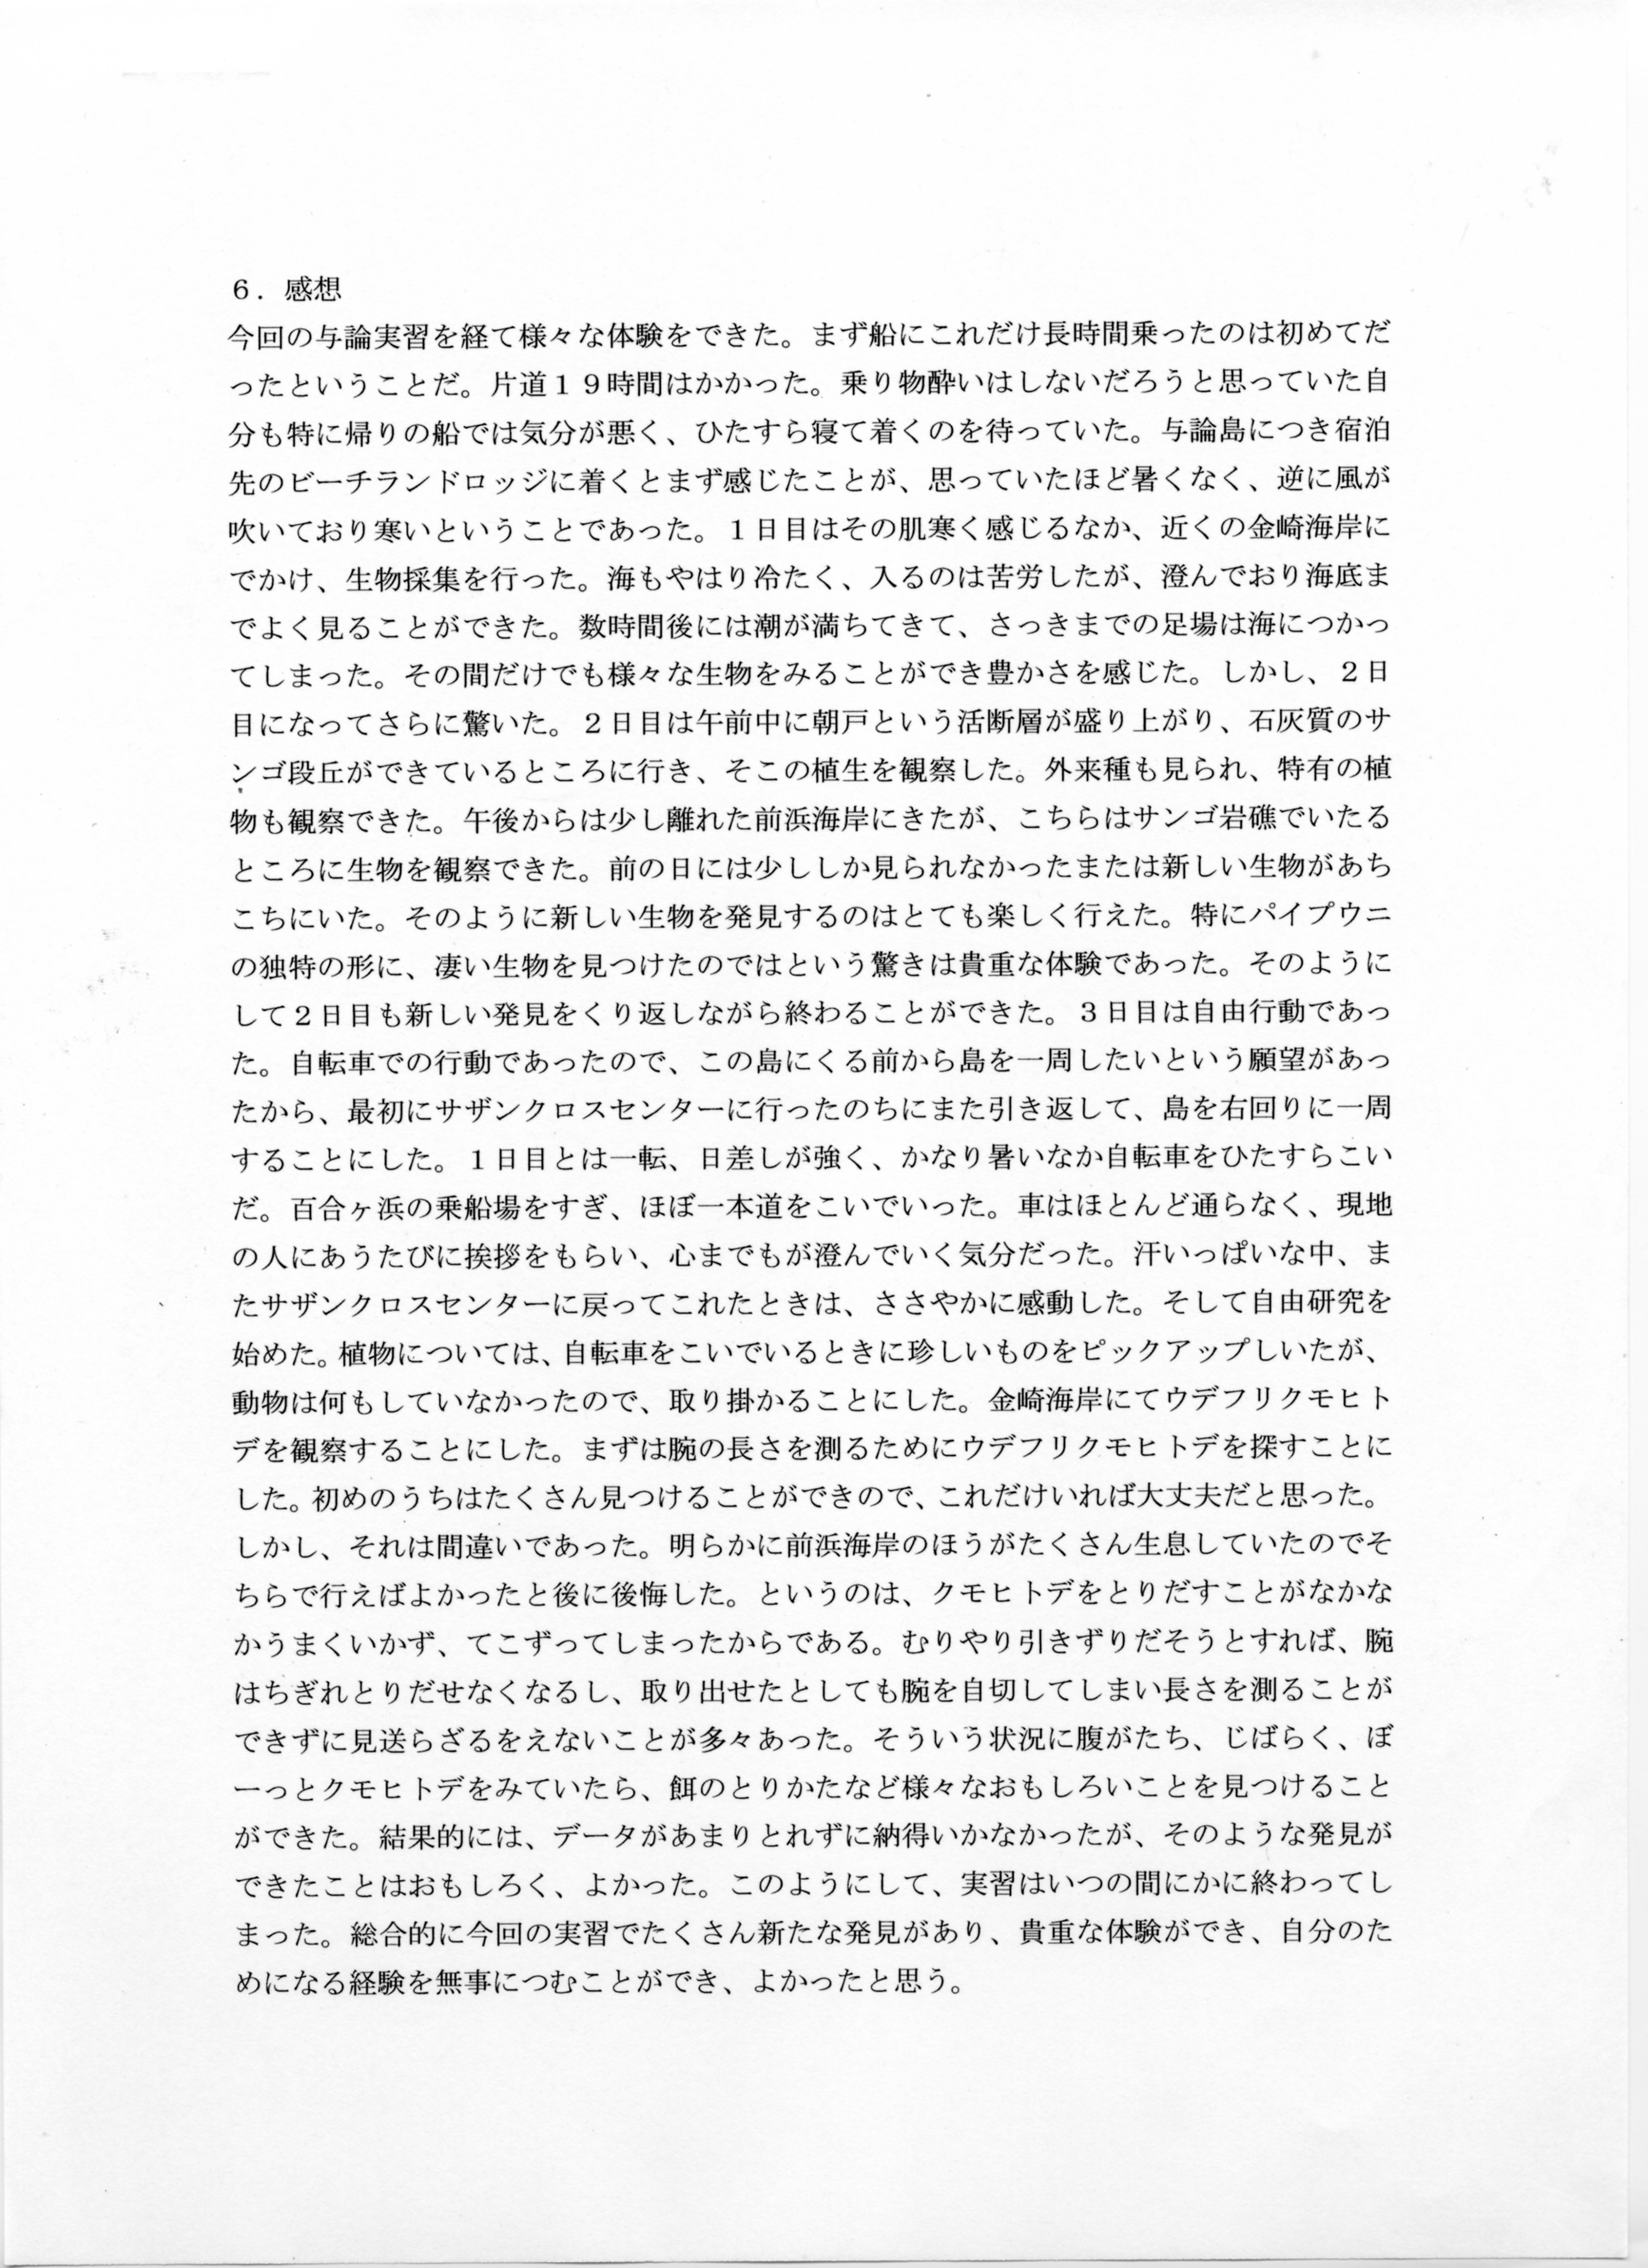 ６．感想
今回の与論実習を経て様々な体験をできた。まず船にこれだけ長時間乗ったのは初めてだ
ったということだ。片道１９時間はかかった。乗り物酔いはしないだろうと思っていた自
分も特に帰りの船では気分が悪く、ひたすら寝て着くのを待っていた。与論島につき宿泊
先のビーチランドロッジに着くとまず感じたことが、思っていたほど暑くなく、逆に風が
吹いており寒いということであった。１日目はその肌寒く感じるなか、近くの金崎海岸に
でかけ、生物採集を行った。海もやはり冷たく、入るのは苦労したが、澄んでおり海底ま
でよく見ることができた。数時間後には潮が満ちてきて、さっきまでの足場は海につかっ
てしまった。その間だけでも様々な生物をみることができ豊かさを感じた。しかし、２日
目になってさらに驚いた。２日目は午前中に朝戸という活断層が盛り上がり、石灰質のサ
ンゴ段丘ができているところに行き、そこの植生を観察した。外来種も見られ、特有の植
物も観察できた。午後からは少し離れた前浜海岸にきたが、こちらはサンゴ岩礁でいたる
ところに生物を観察できた。前の日には少ししか見られなかったまたは新しい生物があち
こちにいた。そのように新しい生物を発見するのはとても楽しく行えた。特にパイプウニ
の独特の形に、凄い生物を見つけたのではという驚きは貴重な体験であった。そのように
して２日目も新しい発見をくり返しながら終わることができた。３日目は自由行動であっ
た。自転車での行動であったので、この島にくる前から島を一周したいという願望があっ
たから、最初にサザンクロスセンターに行ったのちにまた引き返して、島を右回りに一周
することにした。１日目とは一転、日差しが強く、かなり暑いなか自転車をひたすらこい
だ。百合ヶ浜の乗船場をすぎ、ほぼ一本道をこいでいった。車はほとんど通らなく、現地
の人にあうたびに挨拶をもらい、心までもが澄んでいく気分だった。汗いっぱいな中、ま
たサザンクロスセンターに戻ってこれたときは、ささやかに感動した。そして自由研究を
始めた。植物については、自転車をこいでいるときに珍しいものをピックアップしいたが、
動物は何もしていなかったので、取り掛かることにした。金崎海岸にてウデフリクモヒト
デを観察することにした。まずは腕の長さを測るためにウデフリクモヒトデを探すことに
した。初めのうちはたくさん見つけることができので、これだけいれば大丈夫だと思った。
しかし、それは間違いであった。明らかに前浜海岸のほうがたくさん生息していたのでそ
ちらで行えばよかったと後に後悔した。というのは、クモヒトデをとりだすことがなかな
かうまくいかず、てこずってしまったからである。むりやり引きずりだそうとすれば、腕
はちぎれとりだせなくなるし、取り出せたとしても腕を自切してしまい長さを測ることが
できずに見送らざるをえないことが多々あった。そういう状況に腹がたち、じばらく、ぼ
ーっとクモヒトデをみていたら、餌のとりかたなど様々なおもしろいことを見つけること
ができた。結果的には、データがあまりとれずに納得いかなかったが、そのような発見が
できたことはおもしろく、よかった。このようにして、実習はいつの間にかに終わってし
まった。総合的に今回の実習でたくさん新たな発見があり、貴重な体験ができ、自分のた
めになる経験を無事につむことができ、よかったと思う。